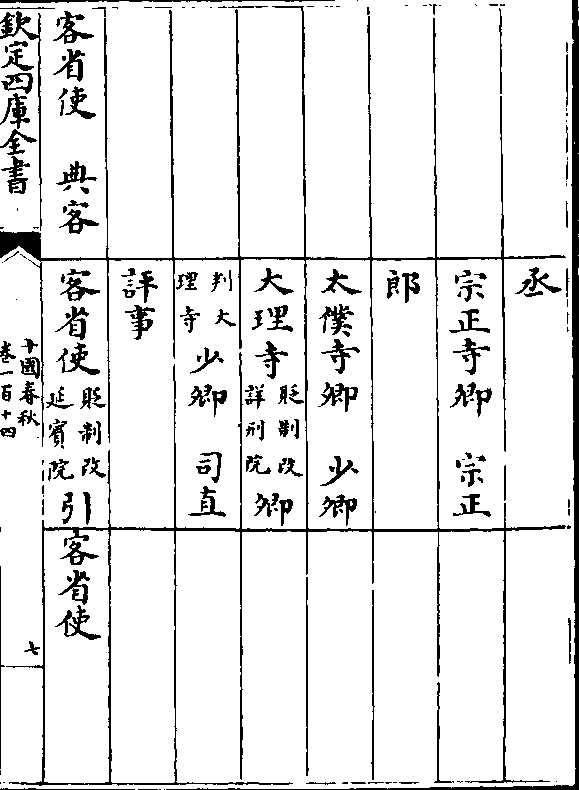 丞
宗正寺卿　宗正
郎
太僕寺卿　少卿
大理寺貶制改詳刑院卿
判大理寺少卿　司直
評事
客省使　典客
客省使貶制改延賓院引
客省使
欽定四庫全書
十國春秋
卷一百十四
七